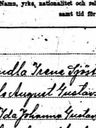 Namn, yrke, nationalitet och rel
samt tid för
Irene
August Gustav
Ida Johanna Gustav